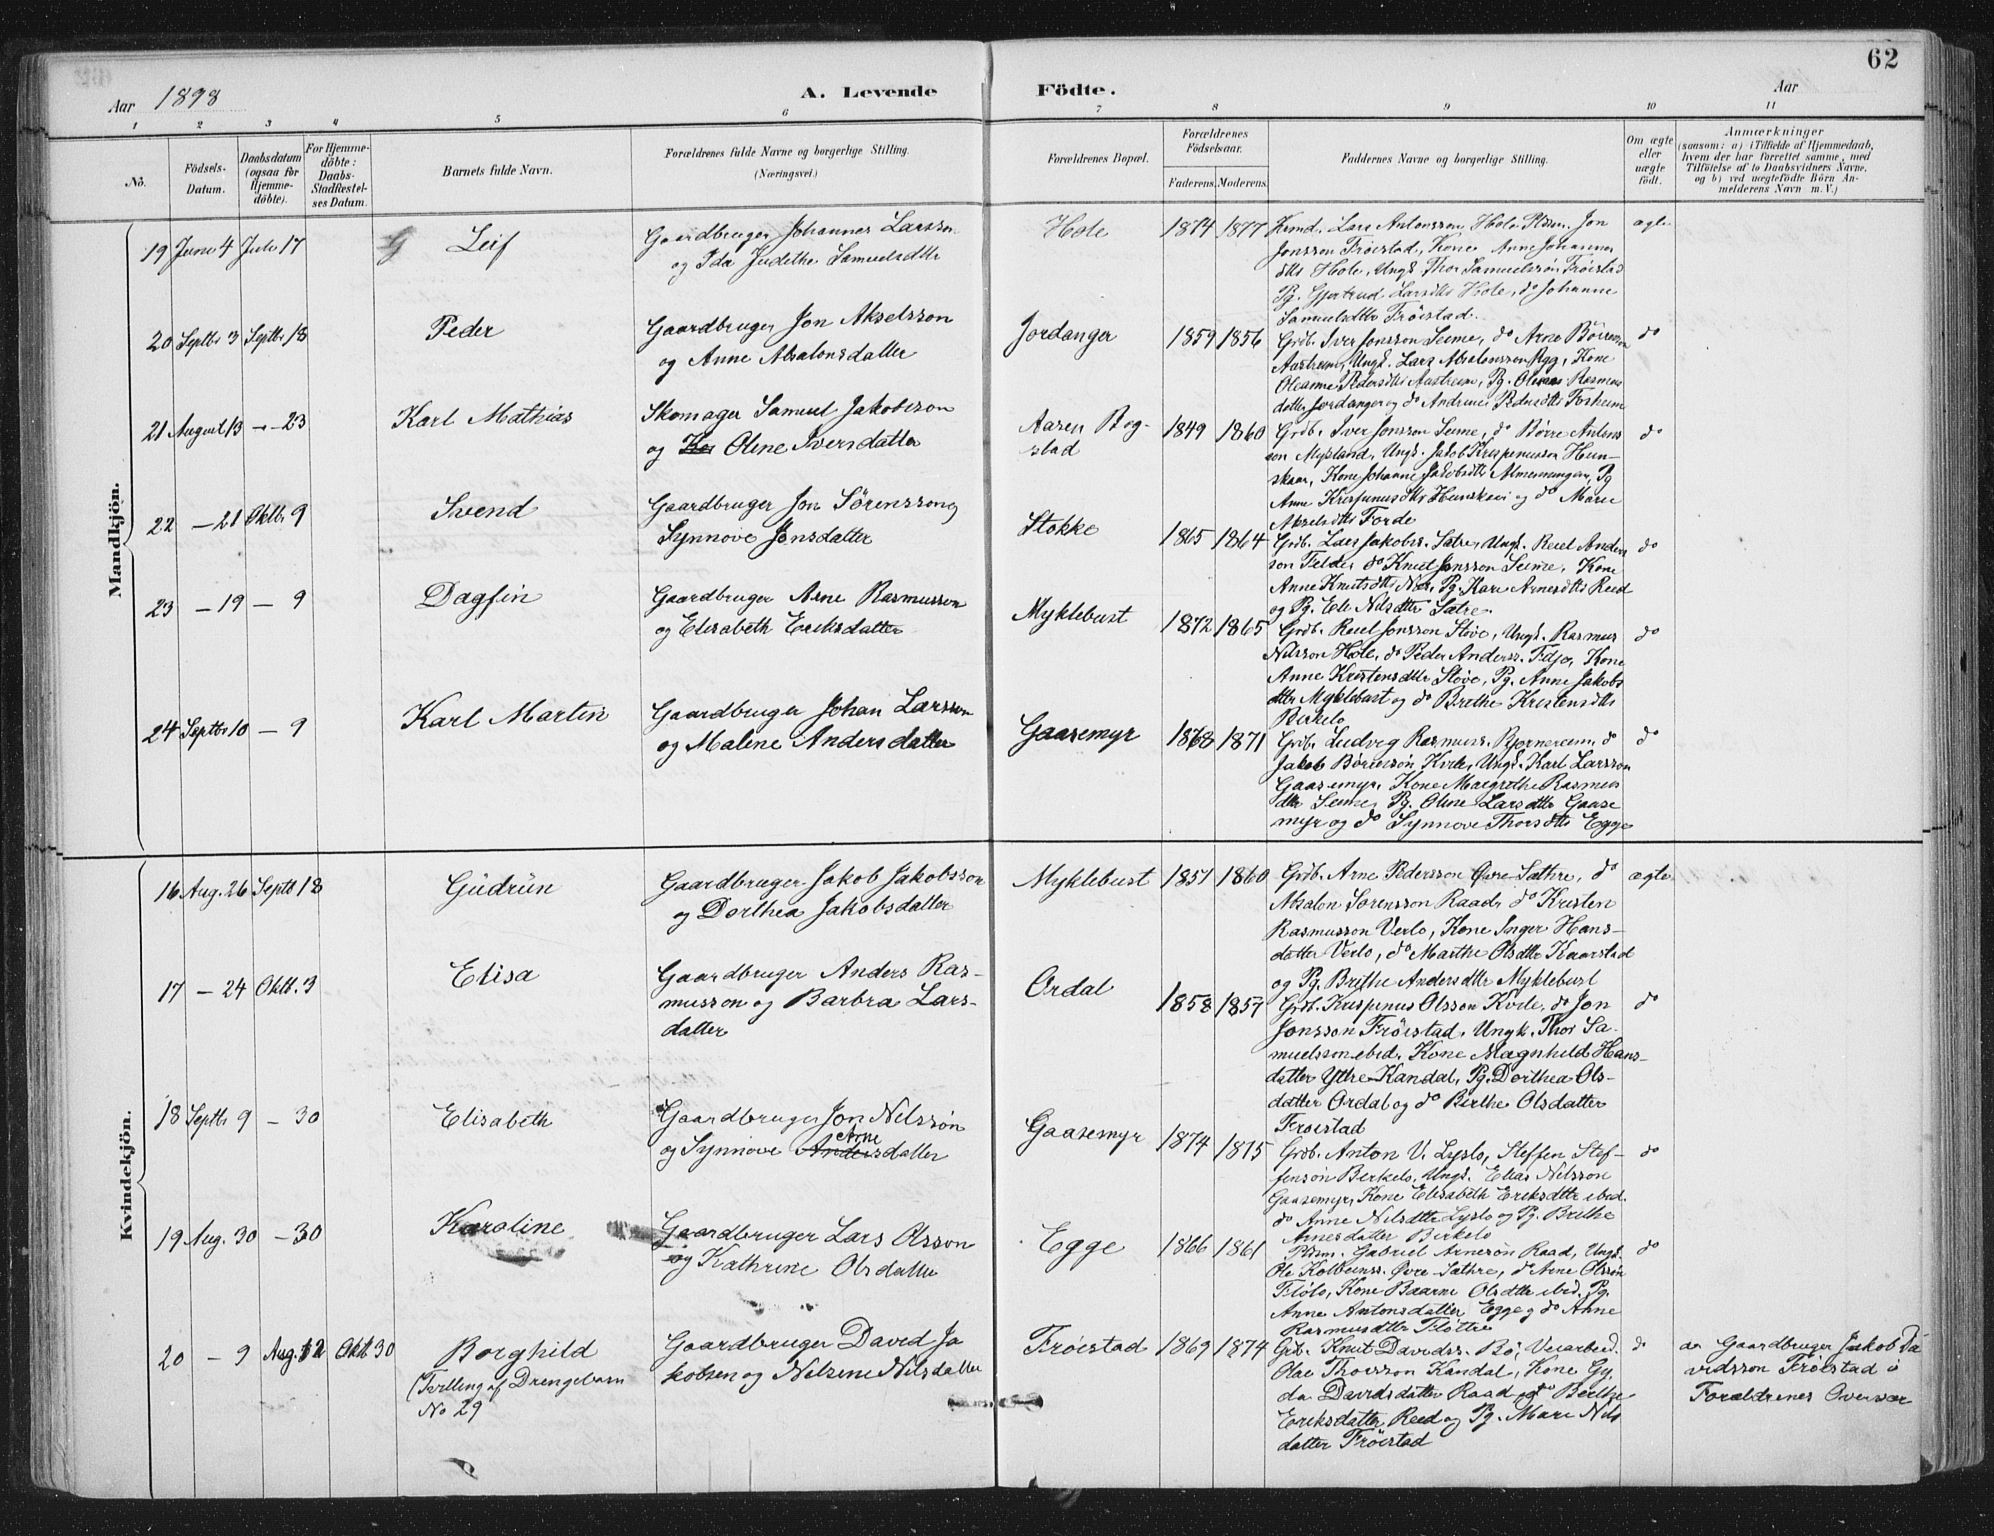 62
Aar 1898
A. Levende Födte.
Aar
1 2 3 4 5 6 7 8 9 10 11
No.
Födsels-Datum.
Daabsdatum (ogsaa for Hjemmedöbte).
For Hjemmedöbte: Daabs-Stadfæstelses Datum.
Barnets fulde Navn.
Forældrenes fulde Navne og borgerlige Stilling.
(Næringsvei.)
Forældrenes Bopæl.
Forældrenes Födselsaar.
Faderens. Moderens.
Faddernes Navne og borgerlige Stilling.
Om ægte eller uægte födt.
Anmærkninger
(saasom: a) i Tilfælde af Hjemmedaab, hvem der har forrettet samme, med Tilföielse af to Daabsvidners Navne, og b) ved uægtefödte Börn Anmelderens Navn m. V.)
Mandkjön.
19 June 4 Juli 17 Leif
Gaardbruger Johannes Larsson
og Ida Judithe Samuelsdttr
Hole 1874 1877
Krmd. Lars Antonsson Hole, Plsm. Jon
Jonsson Fröistad, Kone Anne Johannes
dttr Hole, Ungk. Thor Samuelssön Fröistad
Pg. Gjertrud Larsdttr Hole, do Johanne
Samuelsdttr Fröistad.
ægte
20 Septbr 3 Septbr 18 Peder
Gaardbruger Jon Akselsson
og Anne Absalonsdatter
Jordanger 1859 1856
Grdb. Iver Jonsson Seime, do Arne
Aastrem, Ungk. Lars Absalonsson Kone
Oleanne Pedersdttr Aastrem, Pg. Rasmus
datter Jordanger og do Andrine Pedersdttr
do
21 August 13 - - 23 Karl Mathias
Skomager Samuel Jakobsson
og Oline Iversdatter
Aasen Bog-
stad 1849 1860
Grdb. Iver Jonsson Seime, do Börre Antons
son Mykland, Ungk. Jakob Krispinusson Hun-
skaar, Kone Johanne Jakobsdttr Almenningen, Pg
Anne Krispinusdttr Hunskaar og do Marie
Akselsdttr Förde
do
22 - 21 Oktbr 9 Svend
Gaardbruger Jon Sörensson og
Synnöve Jonsdatter
Stokke 1865 1864
Grdb. Lars Jakobss. Sætre, Ungk. Reiel Anders
son Felde, do Knut Jonsson Seime, Kone
Anne Knutsdttr Pg. Kari Arnesdttr Reed
og Pg. Eli Nilsdttr Sætre.
do
23 - 19 - 9 Dagfin
Gaardbruger Arne Rasmusson
og Elisabeth Eriksdatter
Myklebust 1872 1865
Grdb. Reiel Jonsson Störe, Ungk. Rasmus
Nilsson Hole, do Peder Anderss. Kone
Anne Kristensdttr Störe, Pg. Anne Jakobs
dttr Myklebust og do Brithe Kristensdttr
Birkelo
do
24 Septbr 10 - 9 Karl Martin
Gaardbruger Johan Larsson
og Malene Andersdatter
Gaasemyr 1868 1871
Grdb. Ludvig Rasmuss. Bjørnereim, do
Jakob Börresson Kvile, Ungk. Karl Larsson
Gaasemyr, Kone Margrethe Rasmus
dttr Seime, Pg. Oline Larsdttr Gaase
myr og do Synnöve Thorsdttr Egge
do
Kvindekjön.
16 Aug. 26 Septb 18 Gudrun
Gaardbruger Jakob Jakobsson
og Dorthea Jakobsdatter
Myklebust 1857 1860
Grdb. Arne Pedersson Övre Sæthre, do
Absalon Sörensson Raad, do Kristen
Rasmusson Verlo, Kone Inger Hans-
datter Verlo, do Marthe Olsdttr Kaarstad
og Pg. Brithe Andersdttr Myklebust
ægte
17 - 24 Oktb. 3 Elisa
Gaardbruger Anders Ras-
musson og Barbra Lars-
datter
Ordal 1858 1857
Grdb. Krispinus Olsson Kvile, do Jon
Jonsson Fröistad, Ungk. Thor Sa-
muelsson ibid. Kone Magnhild Hans-
datter Ytre Kandal, Pg. Dorthea Ols-
datter Ordal og do Birthe Olsdatter
Fröistad
do
18 Septbr 9 - 30 Elisabeth
Gaardbruger Jon Nilssön
og Synnöve Arnesdatter
Gaasemyr 1874 1875
Grdb. Anton V. Lyslo, Steffen Stef-
fensön Birkelo, Ungk. Elias Nilsson
Gaasemyr, Kone Elisabeth Eriksdttr ibid.
do Anne Nilsdttr Lyslo og Pg. Brithe
Arnesdatter Birkelo
do
19 Aug. 30 - 30 Karoline
Gaardbruger Lars Olsson
og Kathrine Olsdatter
Egge 1866 1861
Plsm. Gabriel Arnesön Raad, Ungk.
Ole Kolbeinss. Övre Sæthre, do Arne Olssön
Flölo, Kone Baarni Olsdttr ibid. Pg.
Anne Antonsdatter Egge og do Anne
Rasmusdttr
do
20 - 9 Aug. 12 Oktb 30 Borghild
(Tvilling af Drengebarn
No 29
Gaardbruger David Ja
kobsen og Nilsine Nilsdatter
Fröistad 1869 1874
Grdb. Knut Davidss. Bö, Veiarbeid.
Olai Thorsson Kandal, Kone Gy
da Davidsdatter Raad og do Birthe
Eriksdatter Reed og Pg. Mari Nils
datter Fröistad
do
av Gaardbruger Jakob Da
vidsson Fröistad i
Forældrenes Overvær